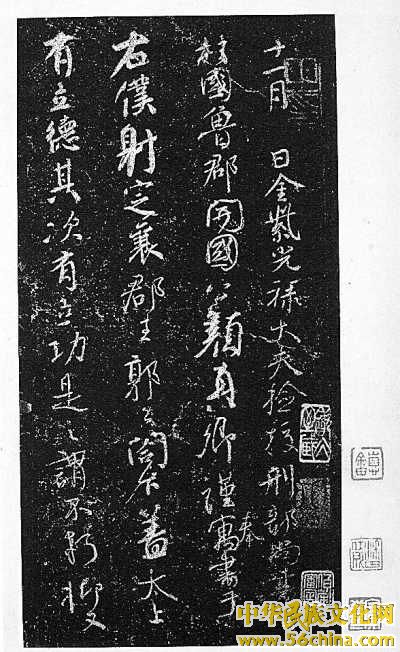 十一月 日金紫光祿大夫檢校刑部尚書
柱國魯郡開國公顏真卿謹奉寓書于
右僕射定襄郡王郭公閤下蓋太上
有立德其次有立功是之謂不朽抑又
中华民族文化网
www.56china.com